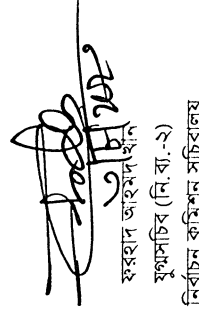 ফরহাদ আহাম্মদ খান
যুগ্মসচিব (নি.ব্য.-২)
নির্বাচন কমিশন সচিবালয়